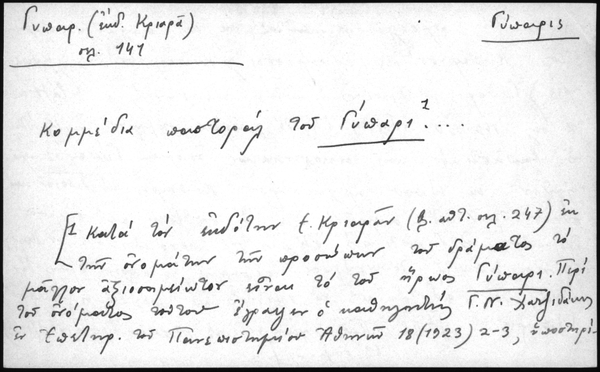 Γυπαρ. (ἔκδ. Κριαρᾶ)
σελ. 141
Γύπαρις
Κομμέδια παστοράλ τοῦ Γύπαρι¹....
[1 Κατὰ τὸν ἐκδότην Ε. Κριαρᾶν (σελ. 247) ἐκ
τῆς ὀνομάτων τῶν προσώπων τοῦ δράματος τὸ
μᾶλλον ἀξιοσημείωτον εἶναι τὸ τοῦ ἥρωος Γύπαρι. Περὶ
τοῦ ὀνόματος τούτου ἔγραψεν ὁ καθηγητὴς Γ.Ν. Χατζιδάκις
ἐν Ἐπετηρ. τοῦ Πανεπιστημίου Ἀθηνῶν 18 (1923) 2-3, ὑποστηρί-